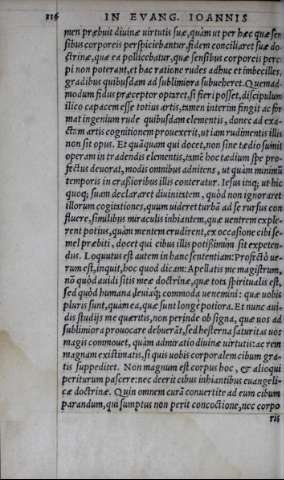 116 IN EVANG. IOANNIS
men præbuit diuinæ virtutis suæ, quàm ut per hæc quæ sen
sibus corporeis perspiciebantur, fidem conciliaret suæ do
ctrinæ, quæ ea pollicebatur, quæ sensibus corporeis perci
pi non poterant, et hac ratione rudes adhuc et imbecilles,
gradibus quibusdam ad sublimiora subueheret. Quemad=
modum fidus præceptor optaret, si fieri posset, discipulum
illico capacem esse totius artis, tamen interim fingit ac for
mat ingenium rude quibusdam elementis, donec ad exa=
ctam artis cognitionem prouexerit, ut iam rudimentis illis
non sit opus. Et quãquam qui docet, non sine tædio sumit
operam in tradendis elementis, tamẽ hoc tædium spe pro=
fectus deuorat, modis omnibus adnitens, ut quàm minimũ
temporis in crassioribus illis conteratur. Iesus itaq; ut hic
quoq; suam declararet diuinitatem, quòd non ignoraret
illorum cogitationes, quum uideret turbã ad se rursus con
fluere, similibus miraculis inhiantem, quæ uentrem exple=
rent potius, quàm mentem erudirent, ex occasione cibi se=
mel præbiti, docet qui cibus illis potissimùm sit expeten=
dus. Loquutus est autem in hanc sententiam: Profectò ue=
rum est, inquit, hoc quod dicam: Apellatis me magistrum,
nõ quòd auidi sitis meæ doctrinæ, quæ tota spiritualis est,
sed quòd humana leuiaq; commoda uenemini: quæ uobis
pluris sunt, quàm ea, quæ sunt longè potiora. Et nunc aui=
dis studijs me quæritis, non perinde ob signa, quæ uos ad
sublimiora prouocare debuerãt, sed hesterna saturitas uos
magis commouet, quàm admiratio diuinæ virtutis: ac rem
magnam existimatis, si quis uobis corporalem cibum gra=
tis suppeditet. Non magnum est corpus hoc, & alioqui
periturum pascere: nec deerit cibus inhiantibus euangeli=
cæ doctrinæ. Quin omnem curã conuertite ad eum cibum
parandum, qui sumptus non perit concoctione, nec corpo
ris